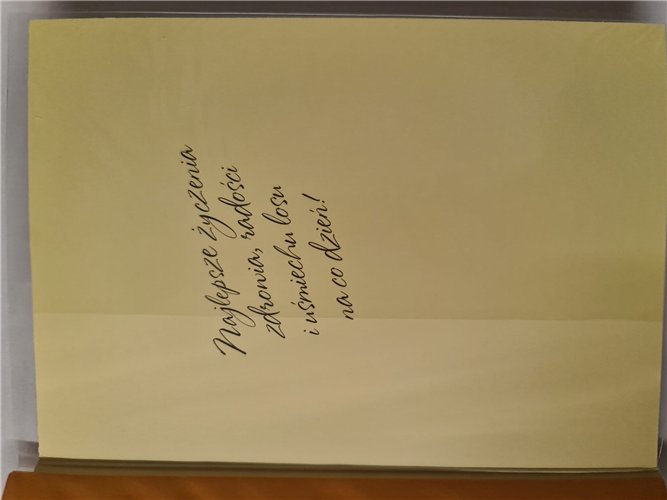 Najlepsze życzenia
zdrowia, radości
i uśmiechu losu
na co dzień!